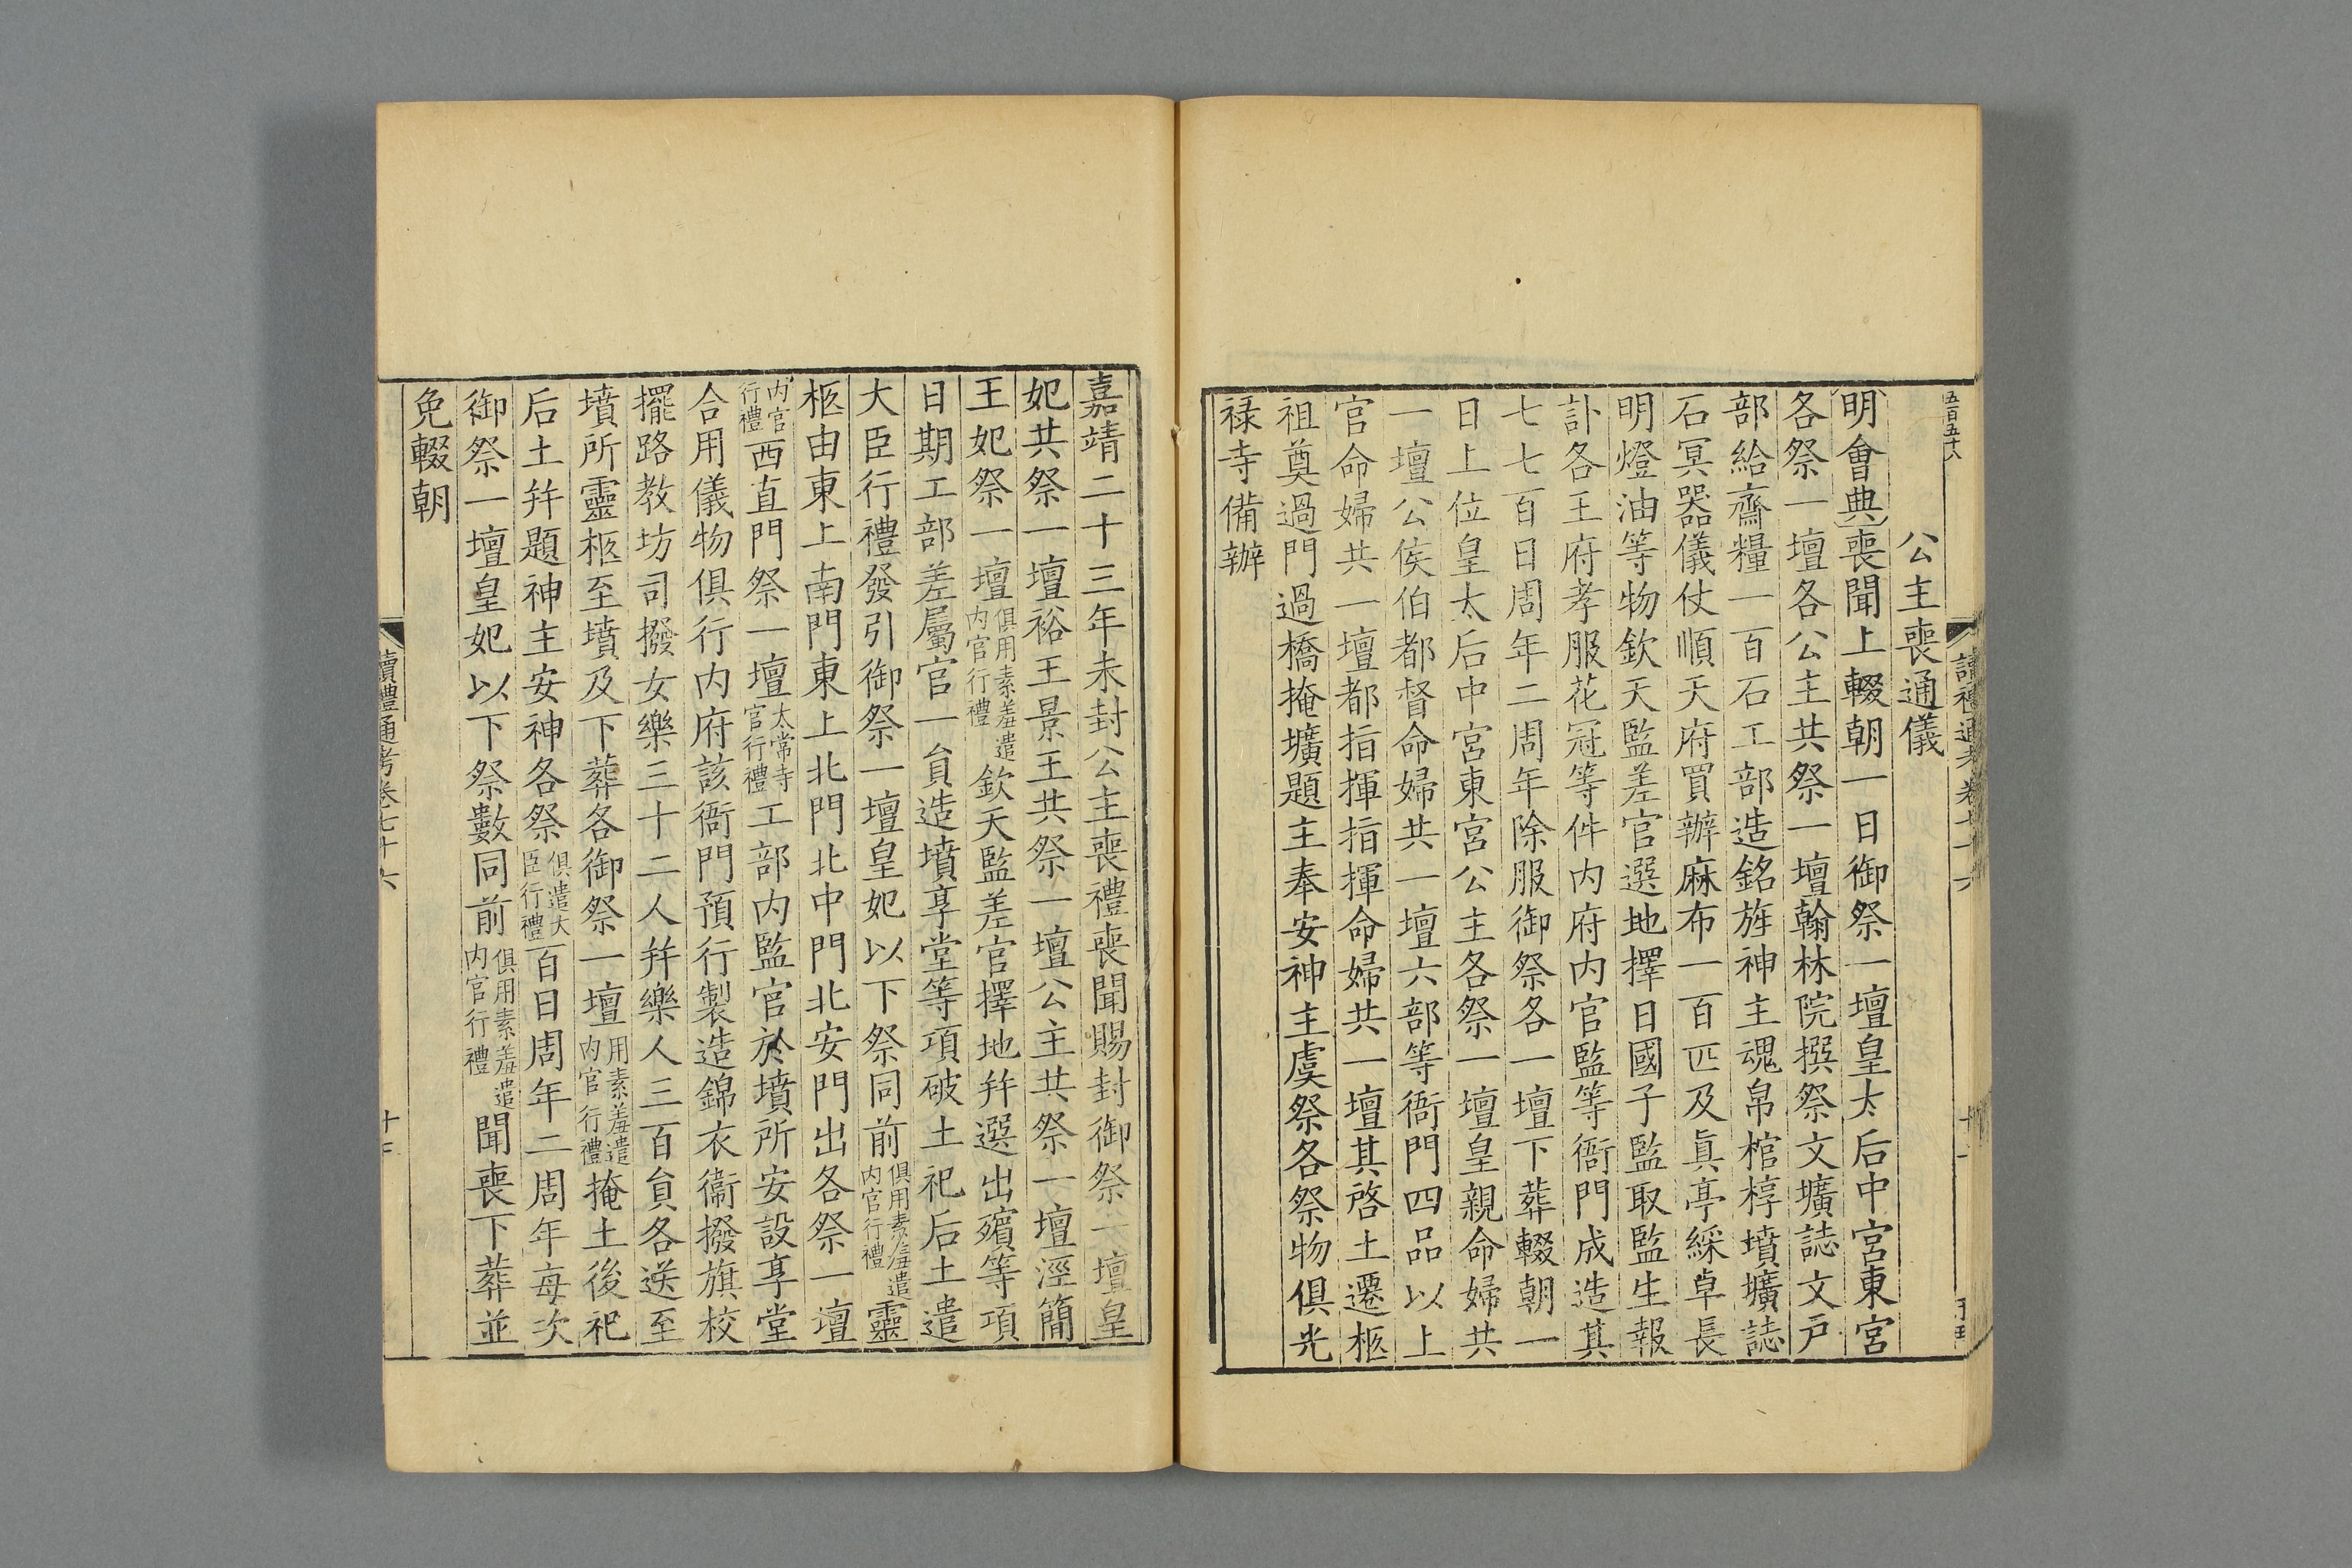 五百五十八
公主喪通儀
明會典喪聞上輟朝一日御祭一壇皇太后中宮東宮
各祭一壇各公主共祭一壇翰林院撰祭文壙誌文戸
部給齋糧一百石工部造銘旌神主魂帛棺椁墳壙誌
石冥器儀仗順天府買辦麻布一百匹及眞亭綵卓長
明燈油等物欽天監差官選地擇日國子監取監生報
訃各王府孝服花冠等件内府内官監等衙門成造其
七七百日周年二周年除服御祭各一壇下葬輟朝一
日上位皇太后中宮東宮公主各祭一壇皇親命婦共
一壇公侯伯都督命婦共一壇六部等衙門四品以上
官命婦共一壇都指揮指揮命婦共一壇其啓土遷柩
祖奠過門過橋掩壙題主奉安神主虞祭各祭物俱光
禄寺備辦
嘉靖二十三年未封公主喪禮喪聞賜封御祭一壇皇
妃共祭一壇裕王景王共祭一壇公主共祭一壇涇簡
王妃祭一壇俱用素羞遣内官行禮欽天監差官擇地幷選出殯等項
日期工部差屬官一員造墳享堂等項破土祀后土遣
大臣行禮發引御祭一壇皇妃以下祭同前俱用素羞遣内官行禮靈
柩由東上南門東上北門北中門北安門出各祭一壇
内官行禮西直門祭一壇太常寺官行禮工部内監官於墳所安設享堂
合用儀物俱行内府該衙門預行製造錦衣衞撥旗校
擺路教坊司撥女樂三十二人幷樂人三百員各送至
墳所靈柩至墳及下葬各御祭一壇用素羞遣内官行禮掩土後祀
后土幷題神主安神各祭俱遣大臣行禮百日周年二周年每次
御祭一壇皇妃以下祭數同前俱用素羞遣内官行禮聞喪下葬並
免輟朝
讀禮通考卷七十六